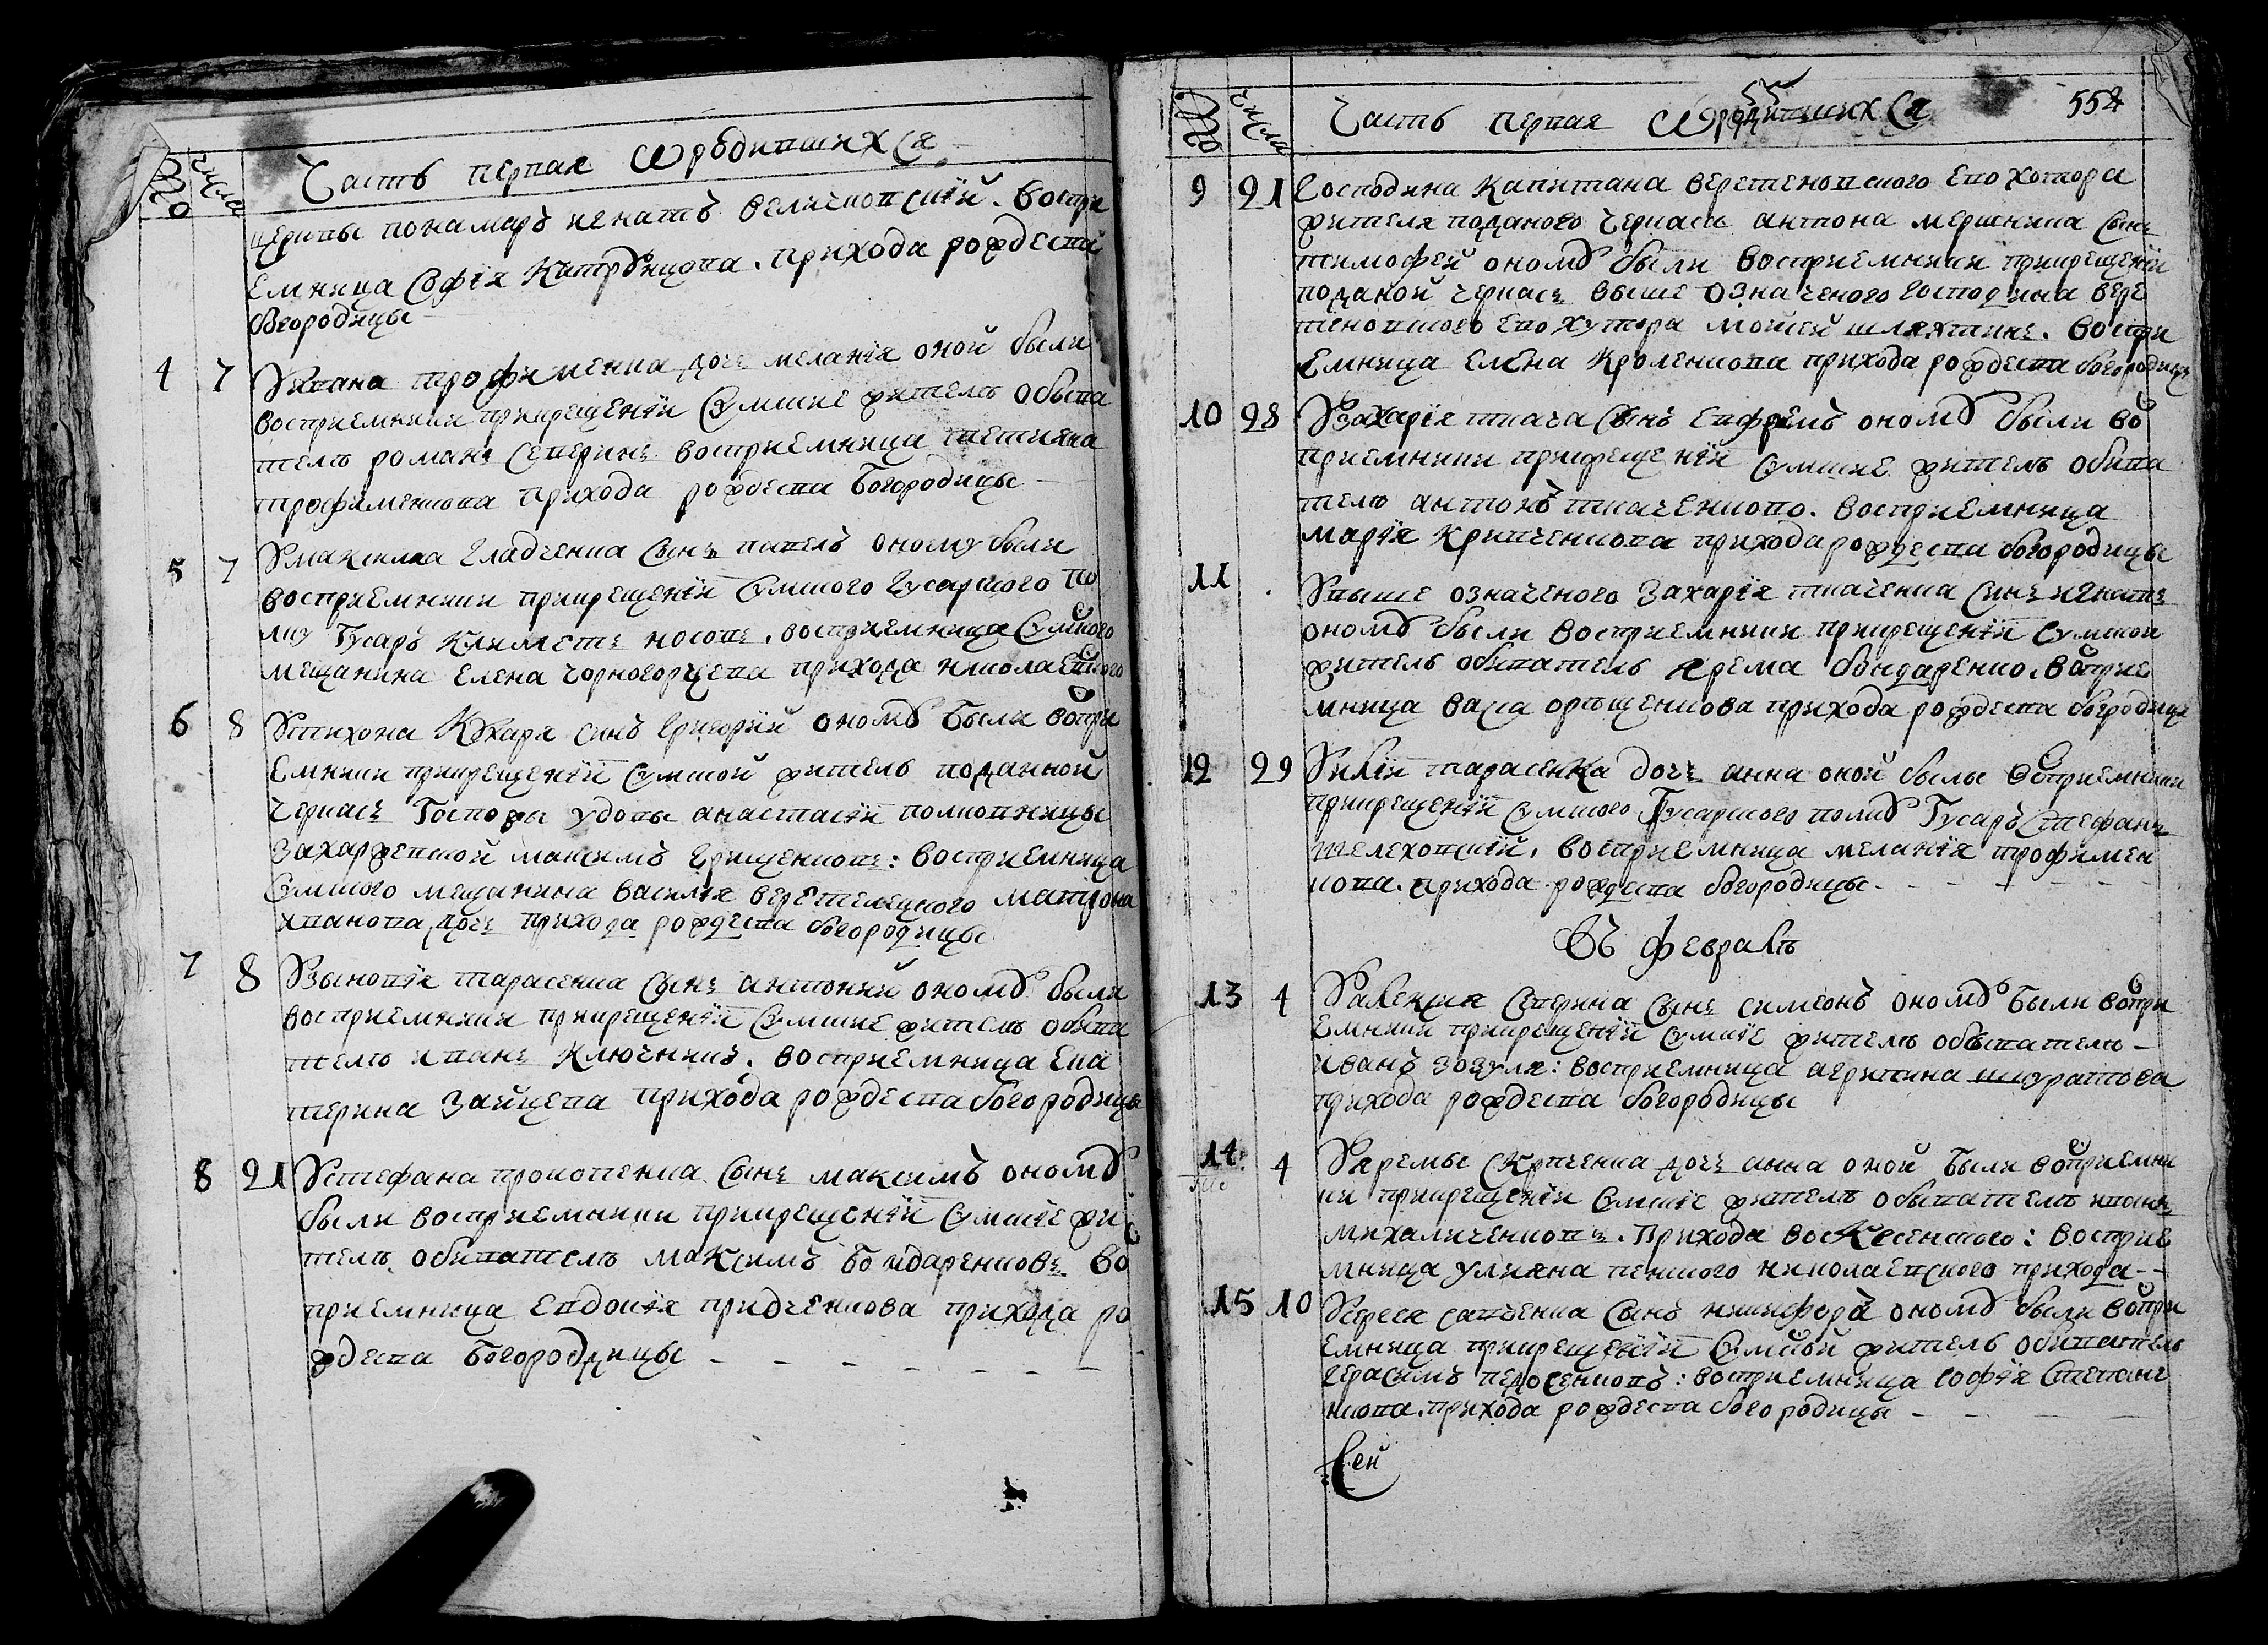 № числа Часть первая ѡ родившихся
церквы понамаръ игнатъ величковский. воспри
емница софія Катрѣнцова. прихода рождества
богородицы
4 7 У Ивана трофименка дочъ меланія оной были
восприемники прикрещеніи сумские жителъ обыва
телъ романъ северинъ восприемница тетияна
трофименкова прихода рождества богородицы
5 7 У максима гладченка сынъ павелъ оному были
восприемники прикрещеніи сумского гусарского по
лку гусаръ климетъ носовъ. восприемница сумского
мещанина елена чорногорцева прихода николаевского
6 8 У тихона Кжаря синъ григорій оному были воспри
емники прикрещеніи сумской жительподанной
черкасъ госпожи удовы анастасіи полковницы
захаржевской максимъ грищенковъ: восприемница
сумского мещанина василія веретелецкого матрона
иванова дочъ прихода рождества богородицы
7 8 У зыновія тарасенка сынъ антоний оному были
восприемники прикрещеніи сумские жителъ обыва
телъ иванъ ключникъ. восприемница ека
терина зайцева прихода рождества богородицы
8 21 У стефана прокопенка сынъ максимъ оному
были восприемники прикрещеніи сумскіе жи
телъ обивателъ максимъ бондаренковъ во
приемница евдокія придченкова прихода ро
ждества богородицы
№ числа Часть первая ѡ родившихся 55 552
9 21 Господина капитана веретеновского его хотора
жителя поданого черкасъ антона мершника сынъ
тимофей оному были восприемники прикрещеніи
поданой черкасъ выше означеного господина вере
теновского его хутора мойсей шляхтинъ. воспри
емница елена кроленкова прихода рождества богородицы
10 28 У Захарія ткача сынъ ефремъ оному были во
приемники прикрещеніи сумские жителъ обива
телъ антонъ ткаченково. восприемница
марія кривченкова прихода рождества богородицы
11 У выше означеного захарія ткаченка синъ игнатъ
оному были восприемники прикрещеніи сумской
житель обиватель ярема бондаренко. восприе
мница васа орищенкова прихода рождества богородицы
12 29 У илїи тарасенка дочъ анна оной былы восприемники
прикрещеніи сумского гусарского полку гусаръ стефанъ
шелеховский. восприемница меланія трофимен
кова. прихода рождества богородицы
Въ февралѣ
13 4 У алекция северина сынъ симеонъ оному были воспри
емники прикрещеніи сумскіе жителъ обывателъ
иванъ зозуля: восприемница агрипина шкуратова
прихода рождества богородицы
14 4 У яремы скрпченка дочъ анна оной были восприемни
ки прикрещеніи сумскіе жителъ обывателъ иванъ
михаличенковъ. прихода воскресенского: восприе
мница улияна пенского николаевского прихода
15 10 У сергея савченка сынъ никифоръ оному были воспри
емница прикрещеніи сумской житель обиватель
герасимъ педосенковъ: восприемница софія степане
нкова. прихода рождества богородицы
Сей